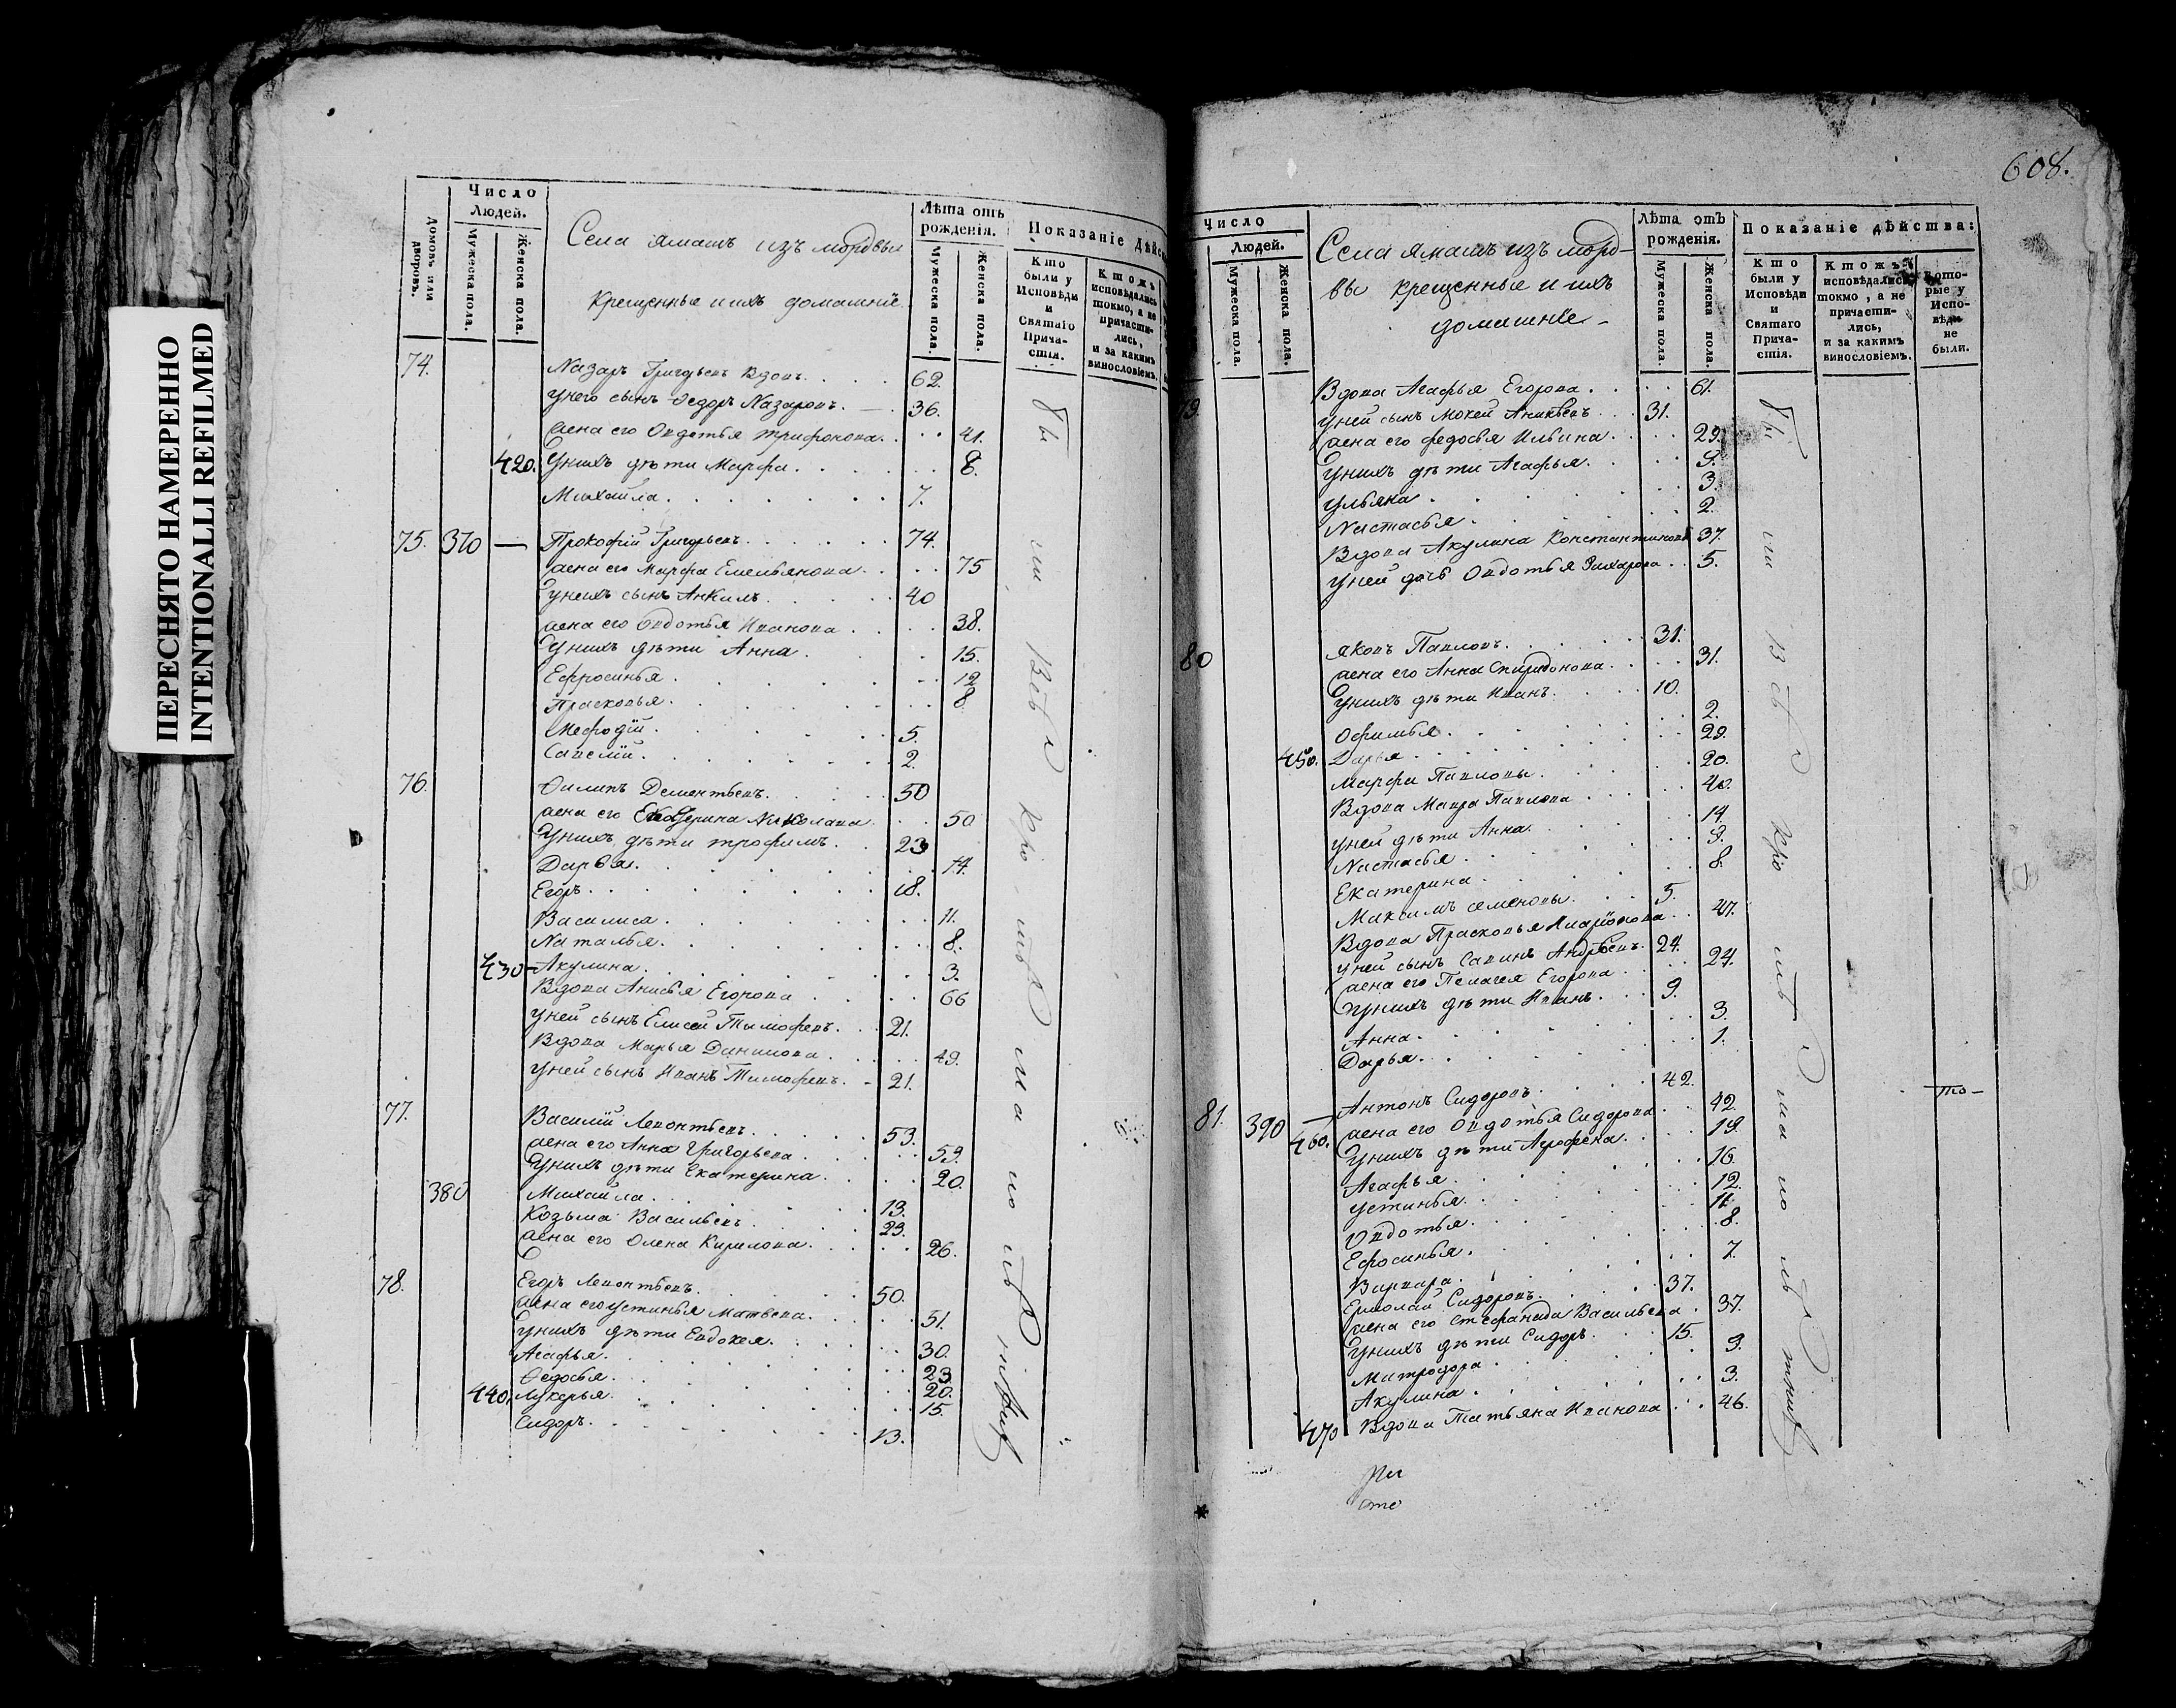 ПЕРЕСНЯТО НАМЕРЕННО
INTENTIONALLI REFILMED
Домовъ или дворовъ.
Число Людей.
Мужеска пола.
Женска пола.
Села ямашъ изъ мордвы
крещенные и ихъ домашніе
Лѣта отъ рожденія.
Мужеска пола.
Женска пола.
Показаніе Дѣйс
Кто были у Исповѣди и Святаго Причастія.
Ктожъ исповѣдались токмо, а не причастились, и за какимъ винословіемъ.
74. Назаръ Григорьевъ вдовъ. 62.
унего сынъ Ѳедоръ Назаровъ. 36.
жена его Овдотья трифонова. 41.
420. Унихъ дѣти Марфа. 8.
Михаила. 7.
75. 370 — Прокофій Григорьевъ. 74.
жена его Марфа Емельянова. 75
Унихъ сынъ Анкилъ. 40
жена его Овдотья Иванова. 38.
Унихъ дѣти Анна. 15.
Ефросинья. 12
Прасковья. 8
Мефодій. 5.
Савелій. 2.
76. Ѳилипъ Дементьевъ. 50
жена его Екатерина Николаева. 50
Унихъ дѣти трофимъ. 23
Дарья. 14.
Егоръ. 18.
Василиса. 11.
Наталья. 8.
430 Акулина. 3.
Вдова Анисья Егорова 66
уней сынъ Елисей Тимофеевъ. 21.
Вдова Марья Данилова. 49.
уней сынъ Иванъ Тимофеевъ. 21.
77. Василій Леонтьевъ. 53.
жена его Анна Григорьева. 59.
Унихъ дѣти Екатерина. 20.
380 Михаила. 13.
Козьма Васильевъ. 23.
жена его Олена Кирилова. 26.
78. Егоръ Леонтьевъ. 50.
жена его устинья Матвеева. 51.
Унихъ дѣти Евдокея. 30.
Агафья. 23
Ѳедосья. 20.
440. Лукерья. 15.
Сидоръ. 13.
608.
Число Людей.
Мужеска пола.
Женска пола.
Села ямашъ изъ морд-
вы крещенные и ихъ
домашніе
Лѣта отъ рожденія.
Мужеска пола.
Женска пола.
Показаніе дѣйства:
Кто были у Исповѣди и Святаго Причастія.
Ктожъ исповѣдались токмо, а не причастились, и за какимъ винословіемъ.
Которые у Исповѣди не были.
Вдова Агафья Егорова. 61.
уней сынъ Мокей Аникѣевъ. 31.
жена его федосья Ильина. 29.
унихъ дѣти Агафья. 9.
ульяна. 3.
Настасья. 2.
Вдова Акулина Константинова 37.
уней дочь Овдотья Захарова. 5.
80 яковъ Павловъ. 31.
жена его Анна Спиридонова. 31.
Унихъ дѣти Иванъ. 10.
Офимья. 2.
450. Дарья. 29.
Марфа Павловы. 20.
Вдова Мавра Павлова 40.
уней дѣти Анна. 14.
Настасья. 9.
Екатерина. 8.
Максимъ семеновы. 5.
Вдова Прасковья Иларіонова. 47.
уней сынъ Савинъ Андрѣевъ. 24.
жена его Пелагея Егорова. 24.
унихъ дѣти Иванъ. 9.
Анна. 3.
Дарья. 1.
81. 390 — Антонъ Сидоровъ. 42.
460. жена его Овдотья Сидорова. 42.
Унихъ дѣти Агрофена. 19.
Агафья. 16.
устинья. 12.
Овдотья. 11.
Ефросинья. 8.
Варвара. 7.
Ермолай Сидоровъ. 37.
жена его Стефанида Васильева. 37.
Унихъ дѣти Сидоръ. 15.
Митродора. 9.
Акулина. 3.
470 Вдова Татьяна Иванова. 46.